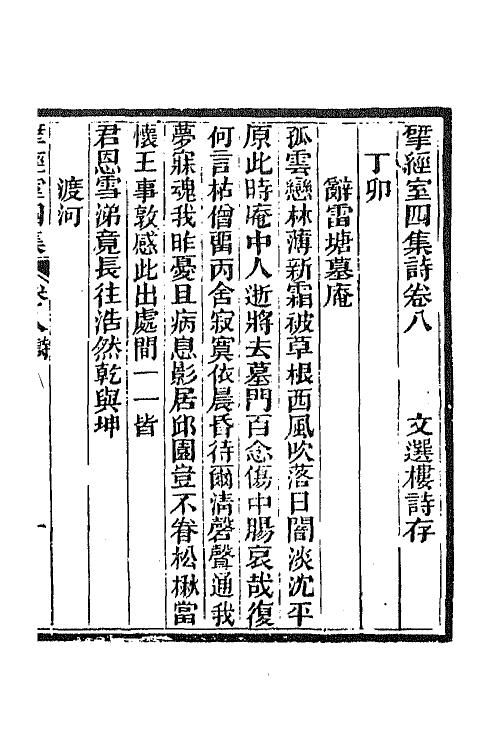 揅經室四集詩卷八　　文選樓詩存
丁卯
辭雷塘墓庵
孤雲戀林薄新霜被草根西風吹落日闇淡沈平
原此時庵中人逝將去墓門百念傷中腸哀哉復
何言枯僧畱丙舍寂寞依晨昏待爾清磬聲通我
夢寐魂我昨憂且病息影居邱園豈不眷松楸當
懷王事敦感此出處間一一皆
君恩雪涕竟長往浩然乾與坤
渡河
揅經室四集 卷八詩 一